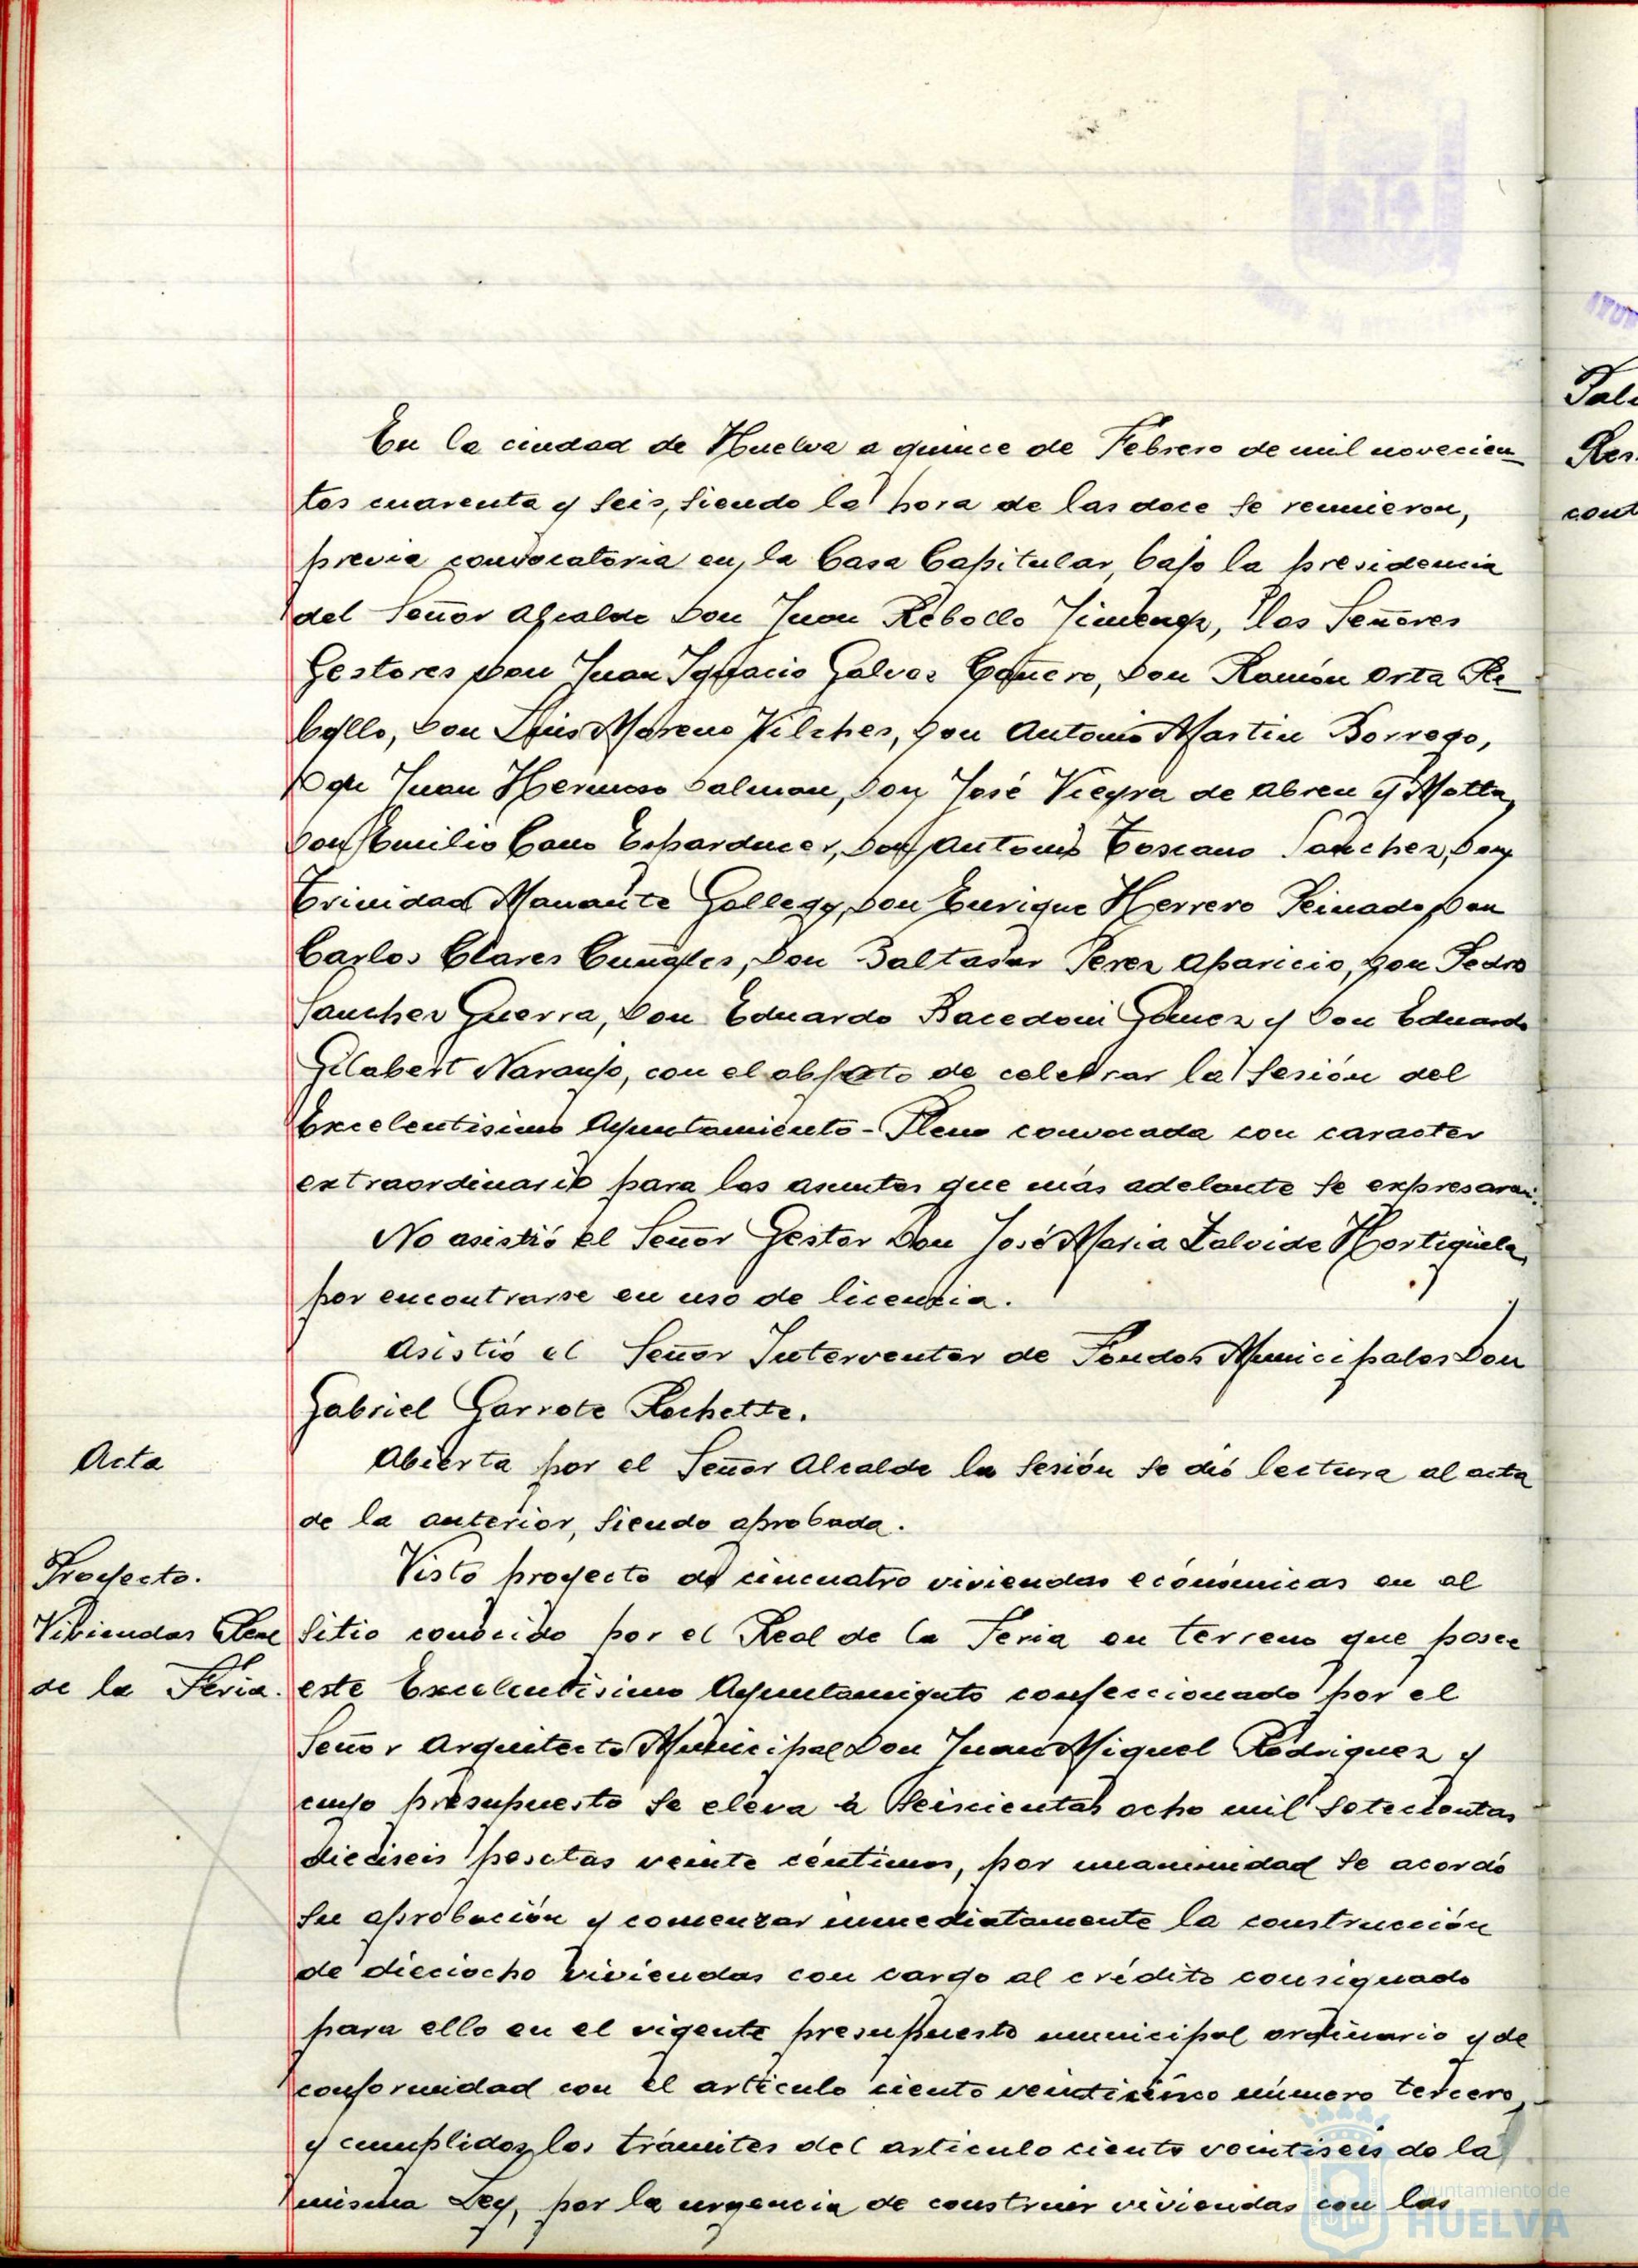 En la ciudad de Huelva a quince de Febrero de mil novecien
tos cuarenta y seis, siendo la hora de las doce se reunieron,
previa convocatoria en la Casa Capitular, bajo la presidencia
del Señor Alcalde Don Juan Rebollo Jimenez, los Señores
Gestores Don Juan Ignacio Galvez Cañero, Don Ramón Orta Re
bollo, Don Luis Moreno Vilches, Don Antonio Martin Borrego,
Don Juan Hermoso Dalmau, Don José Vieyra de Abreu y Motta,
Don Emilio Cano Don Antonio Toscano Sanchez, Don
Trinidad Manante Gallego, Don Enrique Herrero Peinado, Don
Carlos Clares Don Baltasar Perez Aparicio, Don Pedro
Sanchez Guerra, Don Eduardo Bacedoni Gómez y Don Eduardo
Gilabert Naranjo, con el objeto de celebrar la sesión del
Excelentisimo Ayuntamiento-Pleno convocada con caracter
extraordinario para los asuntos que más adelante se expresaran.
No asistió el Señor Gestor Don José Maria Zalvide Hortigüela,
por encontrarse en uso de licencia.
Asistió el Señor Interventor de Fondos Municipales Don
Gabriel Garrote Rochette.
Acta
Abierta por el Señor Alcalde la sesión se dió lectura al acta
de la anterior, siendo aprobada.
Proyecto.
Visto proyecto de cincuatro viviendas económicas en el
Viviendas Real
sitio conocido por el Real de la Feria en terreno que posee
de la Feria.
este Excelentisimo Ayuntamiento confeccionado por el
Señor Arquitecto Municipal Don Juan Miguel Rodriguez y
cuyo presupuesto se eleva a seiscientas ocho mil setecientas
dieciseis pesetas veinte céntimos, por unanimidad se acordó
su aprobación y comenzar inmediatamente la construcción
de dieciocho viviendas con cargo al crédito consignado
para ello en el vigente presupuesto municipal ordinario y de
conformidad con el articulo ciento veinticinco número tercero,
y cumplidos los trámites del articulo ciento veintiseis de la
misma Ley, por la urgencia de construir viviendas con las
Ayuntamiento de
HUELVA